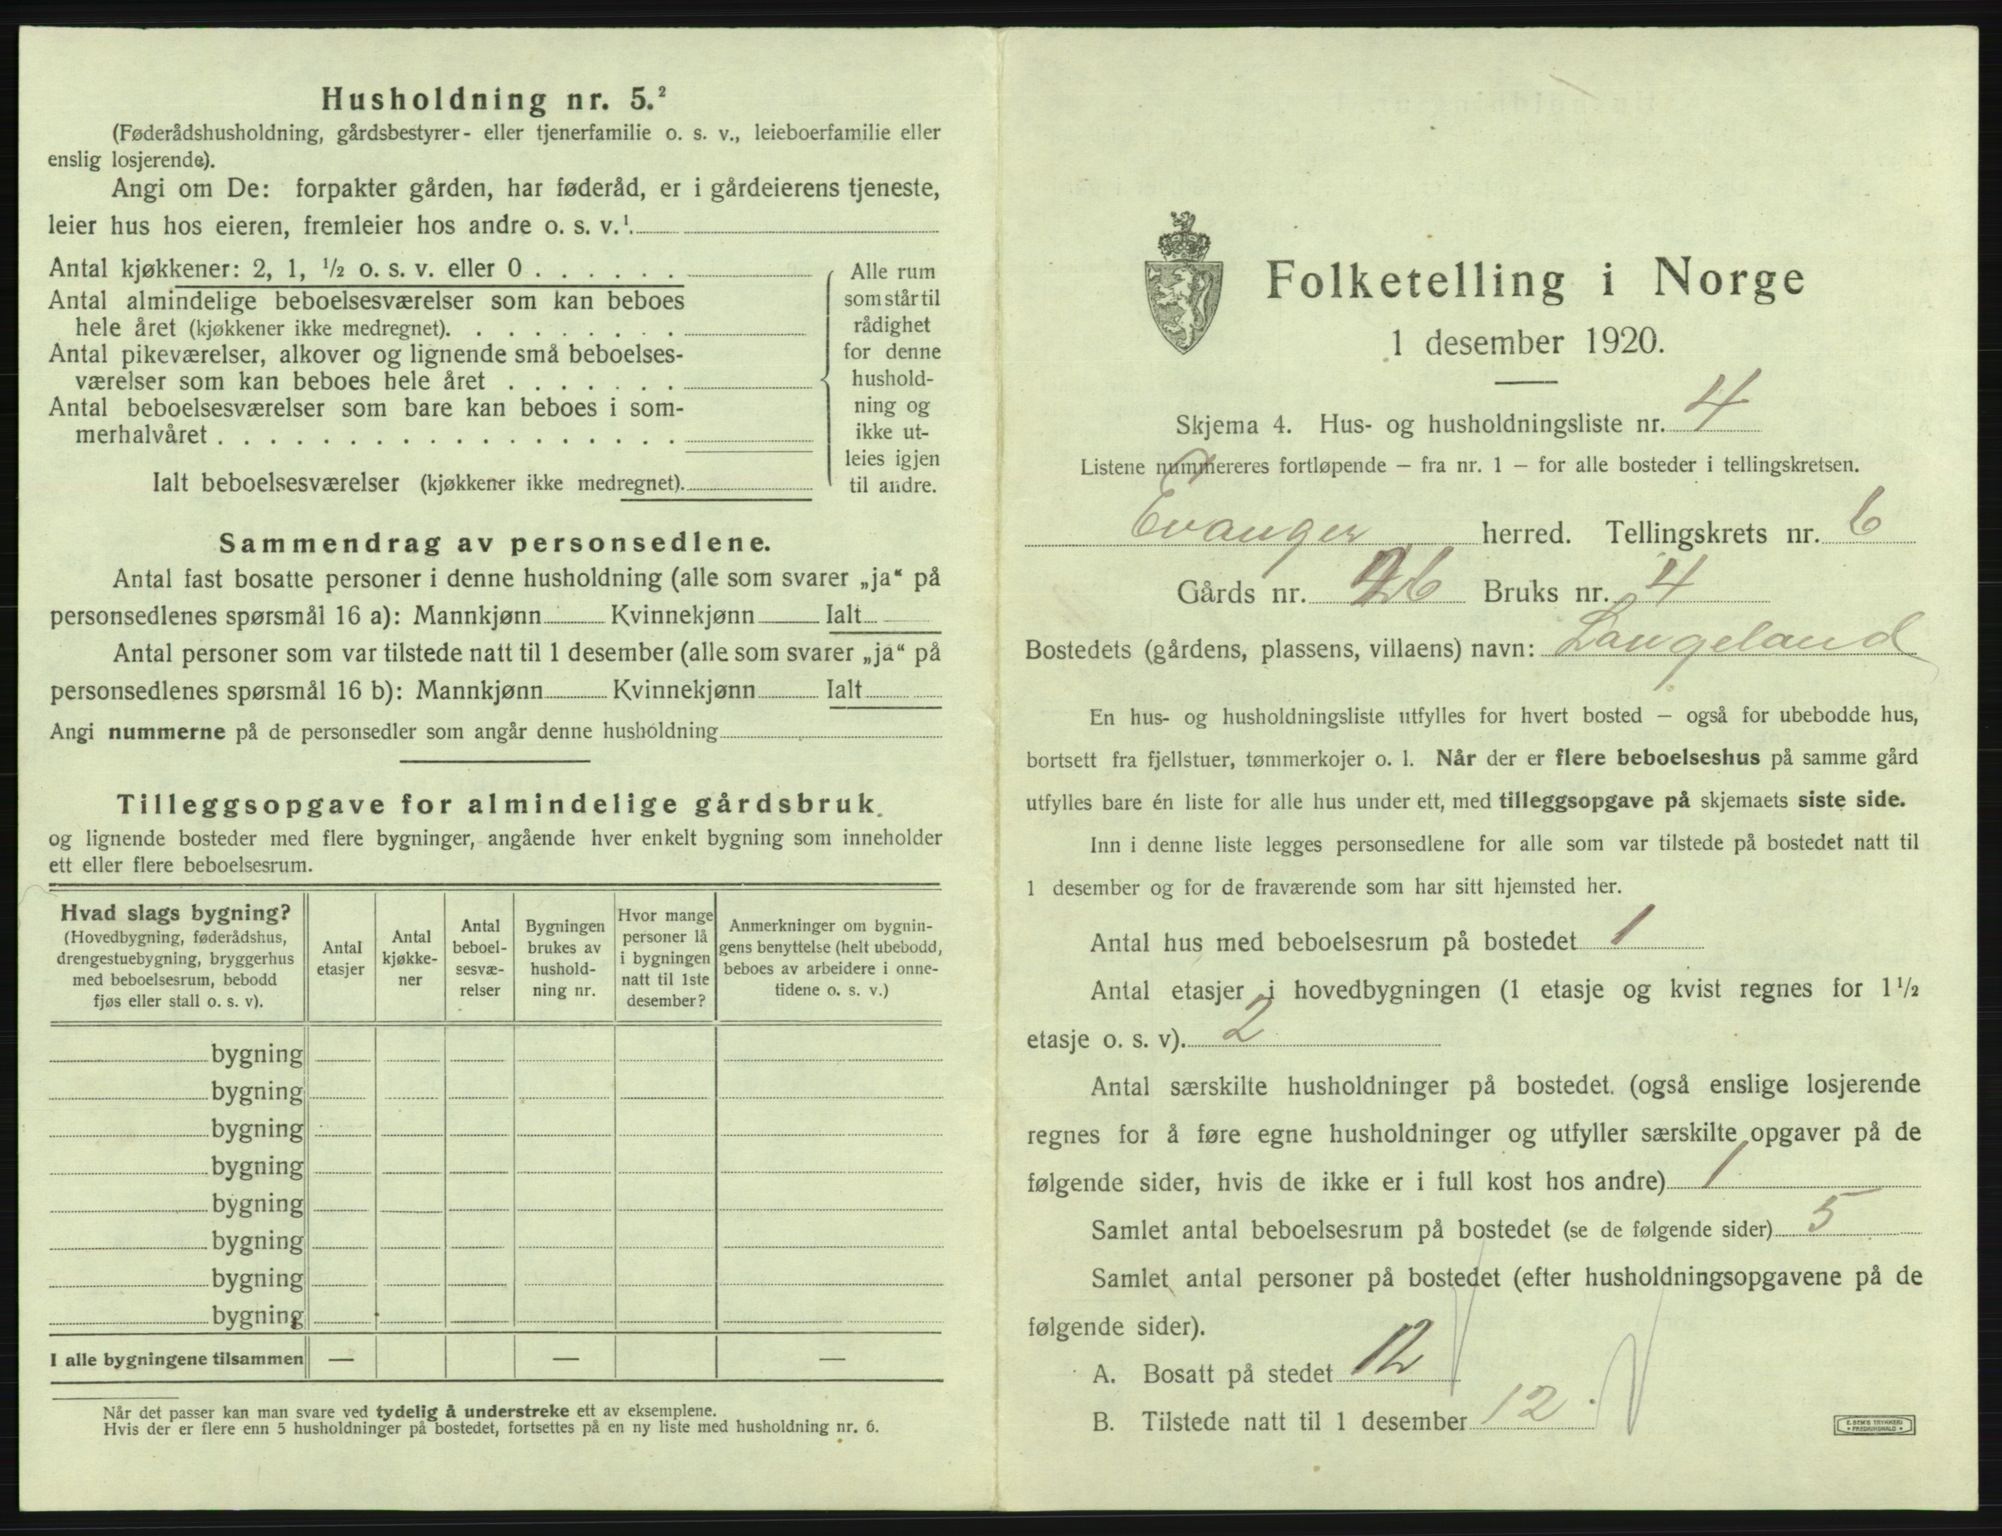 Husholdning nr. 5.²
(Føderådshusholdning, gårdsbestyrer- eller tjenerfamilie o. s. v., leieboerfamilie eller
enslig losjerende).
Angi om De: forpakter gården, har føderåd, er i gårdeierens tjeneste,
leier hus hos eieren, fremleier hos andre o. s. v.¹
Antal kjøkkener: 2, 1, ½ o. s. v. eller 0 . . . . . .
Antal almindelige beboelsesværelser som kan beboes
hele året (kjøkkener ikke medregnet). . . . . . . . .
Antal pikeværelser, alkover og lignende små beboelses-
værelser som kan beboes hele året . . . . . . .
Antal beboelsesværelser som bare kan beboes i som-
merhalvåret . . . . . . . . . . . . . . . . . .
Ialt beboelsesværelser (kjøkkener ikke medregnet).
Alle rum
som står til
rådighet
for denne
hushold-
ning og
ikke ut-
leies igjen
til andre.
Sammendrag av personsedlene.
Antal fast bosatte personer i denne husholdning (alle som svarer „ja“ på
personsedlenes spørsmål 16 a): Mannkjønn Kvinnekjønn Ialt
Antal personer som var tilstede natt til 1 desember (alle som svarer „ja“ på
personsedlenes spørsmål 16 b): Mannkjønn Kvinnekjønn Ialt
Angi nummerne på de personsedler som angår denne husholdning
Tilleggsopgave for almindelige gårdsbruk.
og lignende bosteder med flere bygninger, angående hver enkelt bygning som inneholder
ett eller flere beboelsesrum.
Hvad slags bygning?
(Hovedbygning, føderådshus,
drengestuebygning, bryggerhus
med beboelsesrum, bebodd
fjøs eller stall o. s. v).
Antal
etasjer
Antal
kjøkke-
ner
Antal
beboel-
sesvæ-
relser
Bygningen
brukes av
hushold-
ning nr.
Hvor mange
personer lå
i bygningen
natt til 1ste
desember?
Anmerkninger om bygnin-
gens benyttelse (helt ubebodd,
beboes av arbeidere i onne-
tidene o. s. v.)
bygning
bygning
bygning
bygning
bygning
bygning
bygning
bygning
I alle bygningene tilsammen — — —
Når det passer kan man svare ved tydelig å understreke ett av eksemplene.
Hvis der er flere enn 5 husholdninger på bostedet, fortsettes på en ny liste med husholdning nr. 6.
Folketelling i Norge
1 desember 1920.
Skjema 4. Hus- og husholdningsliste nr. 4
Listene nummereres fortløpende – fra nr. 1 – for alle bosteder i tellingskretsen.
Evanger herred. Tellingskrets nr. 6
Gårds nr. 26 Bruks nr. 4
Bostedets (gårdens, plassens, villaens) navn: Langeland
En hus- og husholdningsliste utfylles for hvert bosted – også for ubebodde hus,
bortsett fra fjellstuer, tømmerkojer o. l. Når der er flere beboelseshus på samme gård
utfylles bare én liste for alle hus under ett, med tilleggsopgave på skjemaets siste side.
Inn i denne liste legges personsedlene for alle som var tilstede på bostedet natt til
1 desember og for de fraværende som har sitt hjemsted her.
Antal hus med beboelsesrum på bostedet 1
Antal etasjer i hovedbygningen (1 etasje og kvist regnes for 1½
etasje o. s. v). 2
Antal særskilte husholdninger på bostedet. (også enslige losjerende
regnes for å føre egne husholdninger og utfyller særskilte opgaver på de
følgende sider, hvis de ikke er i full kost hos andre) 1
Samlet antal beboelsesrum på bostedet (se de følgende sider) 5
Samlet antal personer på bostedet (efter husholdningsopgavene på de
følgende sider).
A. Bosatt på stedet 12
B. Tilstede natt til 1 desember 12
E. SEM'S TRYKKERI
FREDRIKSHALD